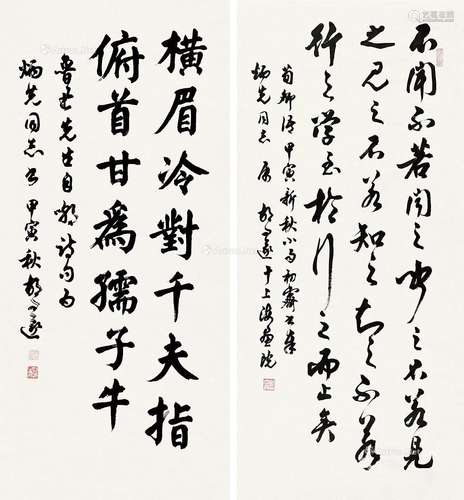 不聞不若聞之聞之不若見
之見之不若知之知之不若
行之學至於行之而止矣
荀卿語 甲寅新秋小雨初霽書奉
炳先同志屬 胡問遂于上海畫院
橫眉冷對千夫指
俯首甘爲孺子牛
魯迅先生自嘲詩句為
炳先同志書 甲寅秋胡問遂